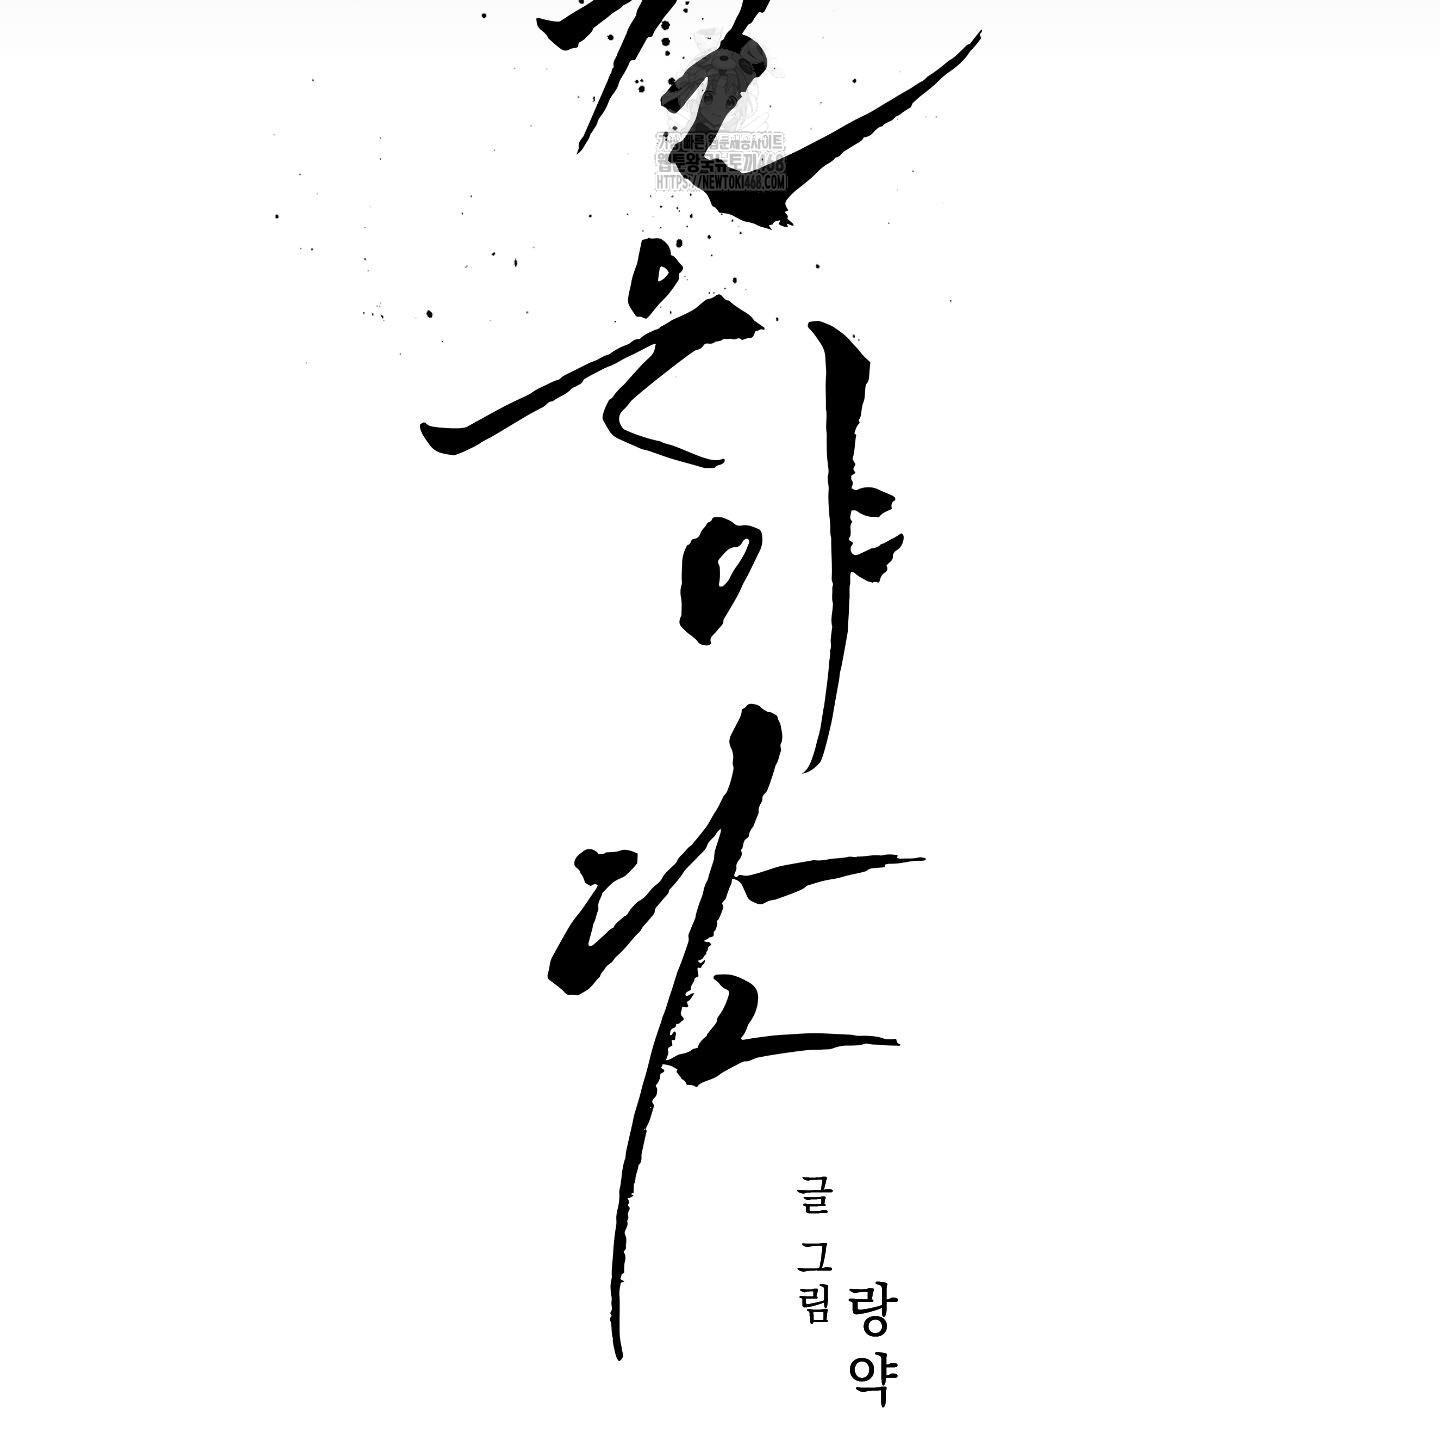 가장 빠른 웹툰제공사이트
웹툰왕국뉴토끼468
HTTPS://NEWTOKI468.COM
은
야
담
글 그림
랑약